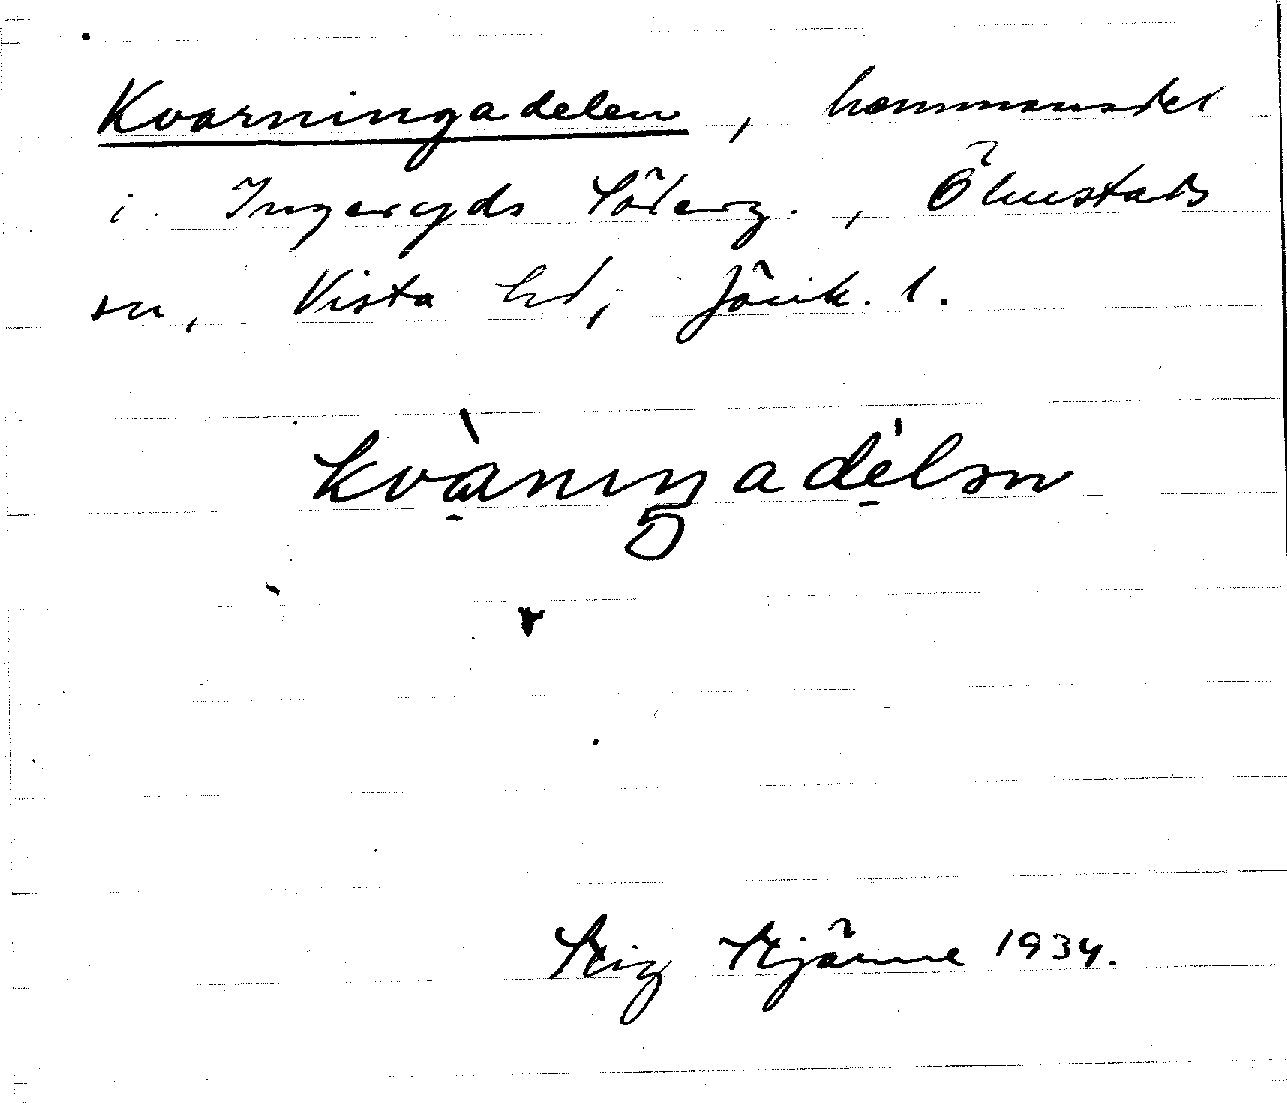 Kvarningadelen, hemmansdel
i Ingeryds Söderg., Ölmstads
sn, Vista hd, Jönk. l.
kvàningadélən
Stig Stjärne 1934.